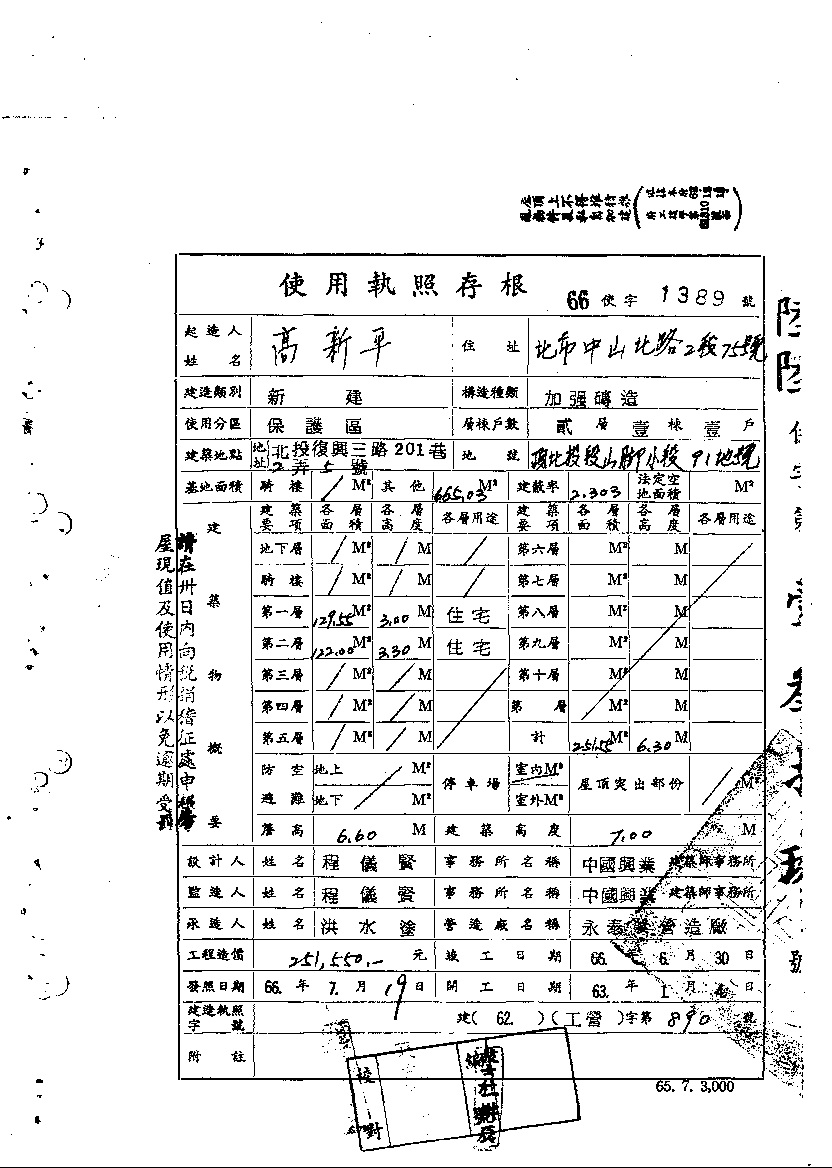 使用執照存根
66 使字 1389 號
起造人姓名 高新平 住址 北市中山北路2段75號
建造類別 新建 構造種類 加强磚造
使用分區 保護區 層棟戶數 貳層壹棟壹戶
建築地點 地址 北投復興三路201巷2弄5號 地號 頂北投段山脚小段91地號
基地面積 騎樓 / M² 其他 665.03 M² 建蔽率 2.303 法定空地面積 M²
建築物概要
建築要項 各層面積 各層高度 各層用途 建築要項 各層面積 各層高度 各層用途
地下層 / M² / M / 第六層 M² M
騎樓 / M² / M / 第七層 M² M
第一層 129.55 M² 3.00 M 住宅 第八層 M² M
第二層 122.00 M² 3.30 M 住宅 第九層 M² M
第三層 / M² / M 第十層 M² M
第四層 / M² / M 第 層 M² M
第五層 / M² / M 計 251.55 M² 6.30 M
防空避難 地上 M² 地下 M² 停車場 室內M² 室外M² 屋頂突出部份 / M²
簷高 6.60 M 建築高度 7.00 M
設計人 姓名 程儀賢 事務所名稱 中國興業建築師事務所
監造人 姓名 程儀賢 事務所名稱 中國興業建築師事務所
承造人 姓名 洪水塗 營造廠名稱 營造廠
工程造價 251,550.- 元 竣工日期 66.年6月30日
發照日期 66.年7.月19日 開工日期 63.年1月 日
建造執照字號 建(62.)(工營)字第890號
附註
65.7.3,000
請在卅日內向稅捐稽征處申報房
屋現值及使用情形以免逾期受罰
校對